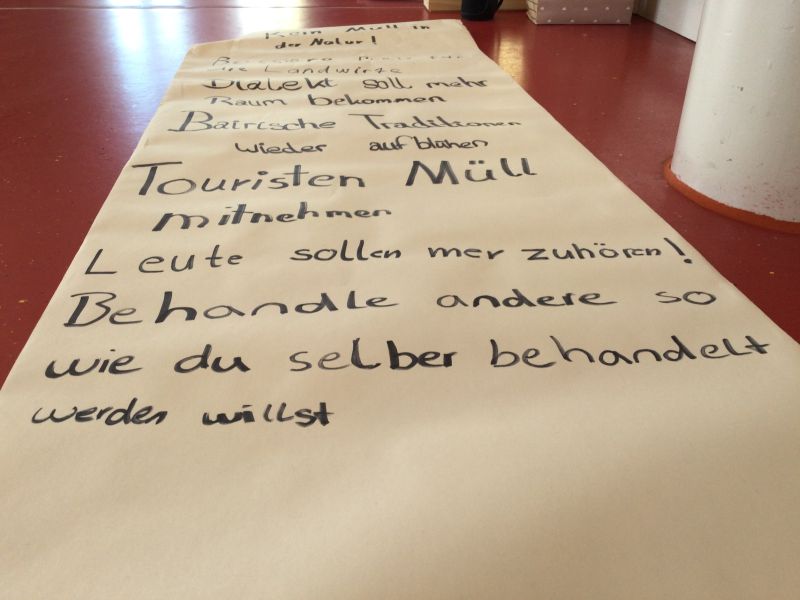 Kein Müll in
der Natur!
Landwirte
Dialekt soll mehr
Raum bekommen
Bairische Traditionen
wieder aufblühen
Touristen Müll
mitnehmen
Leute sollen mer zuhören!
Behandle andere so
wie du selber behandelt
werden willst